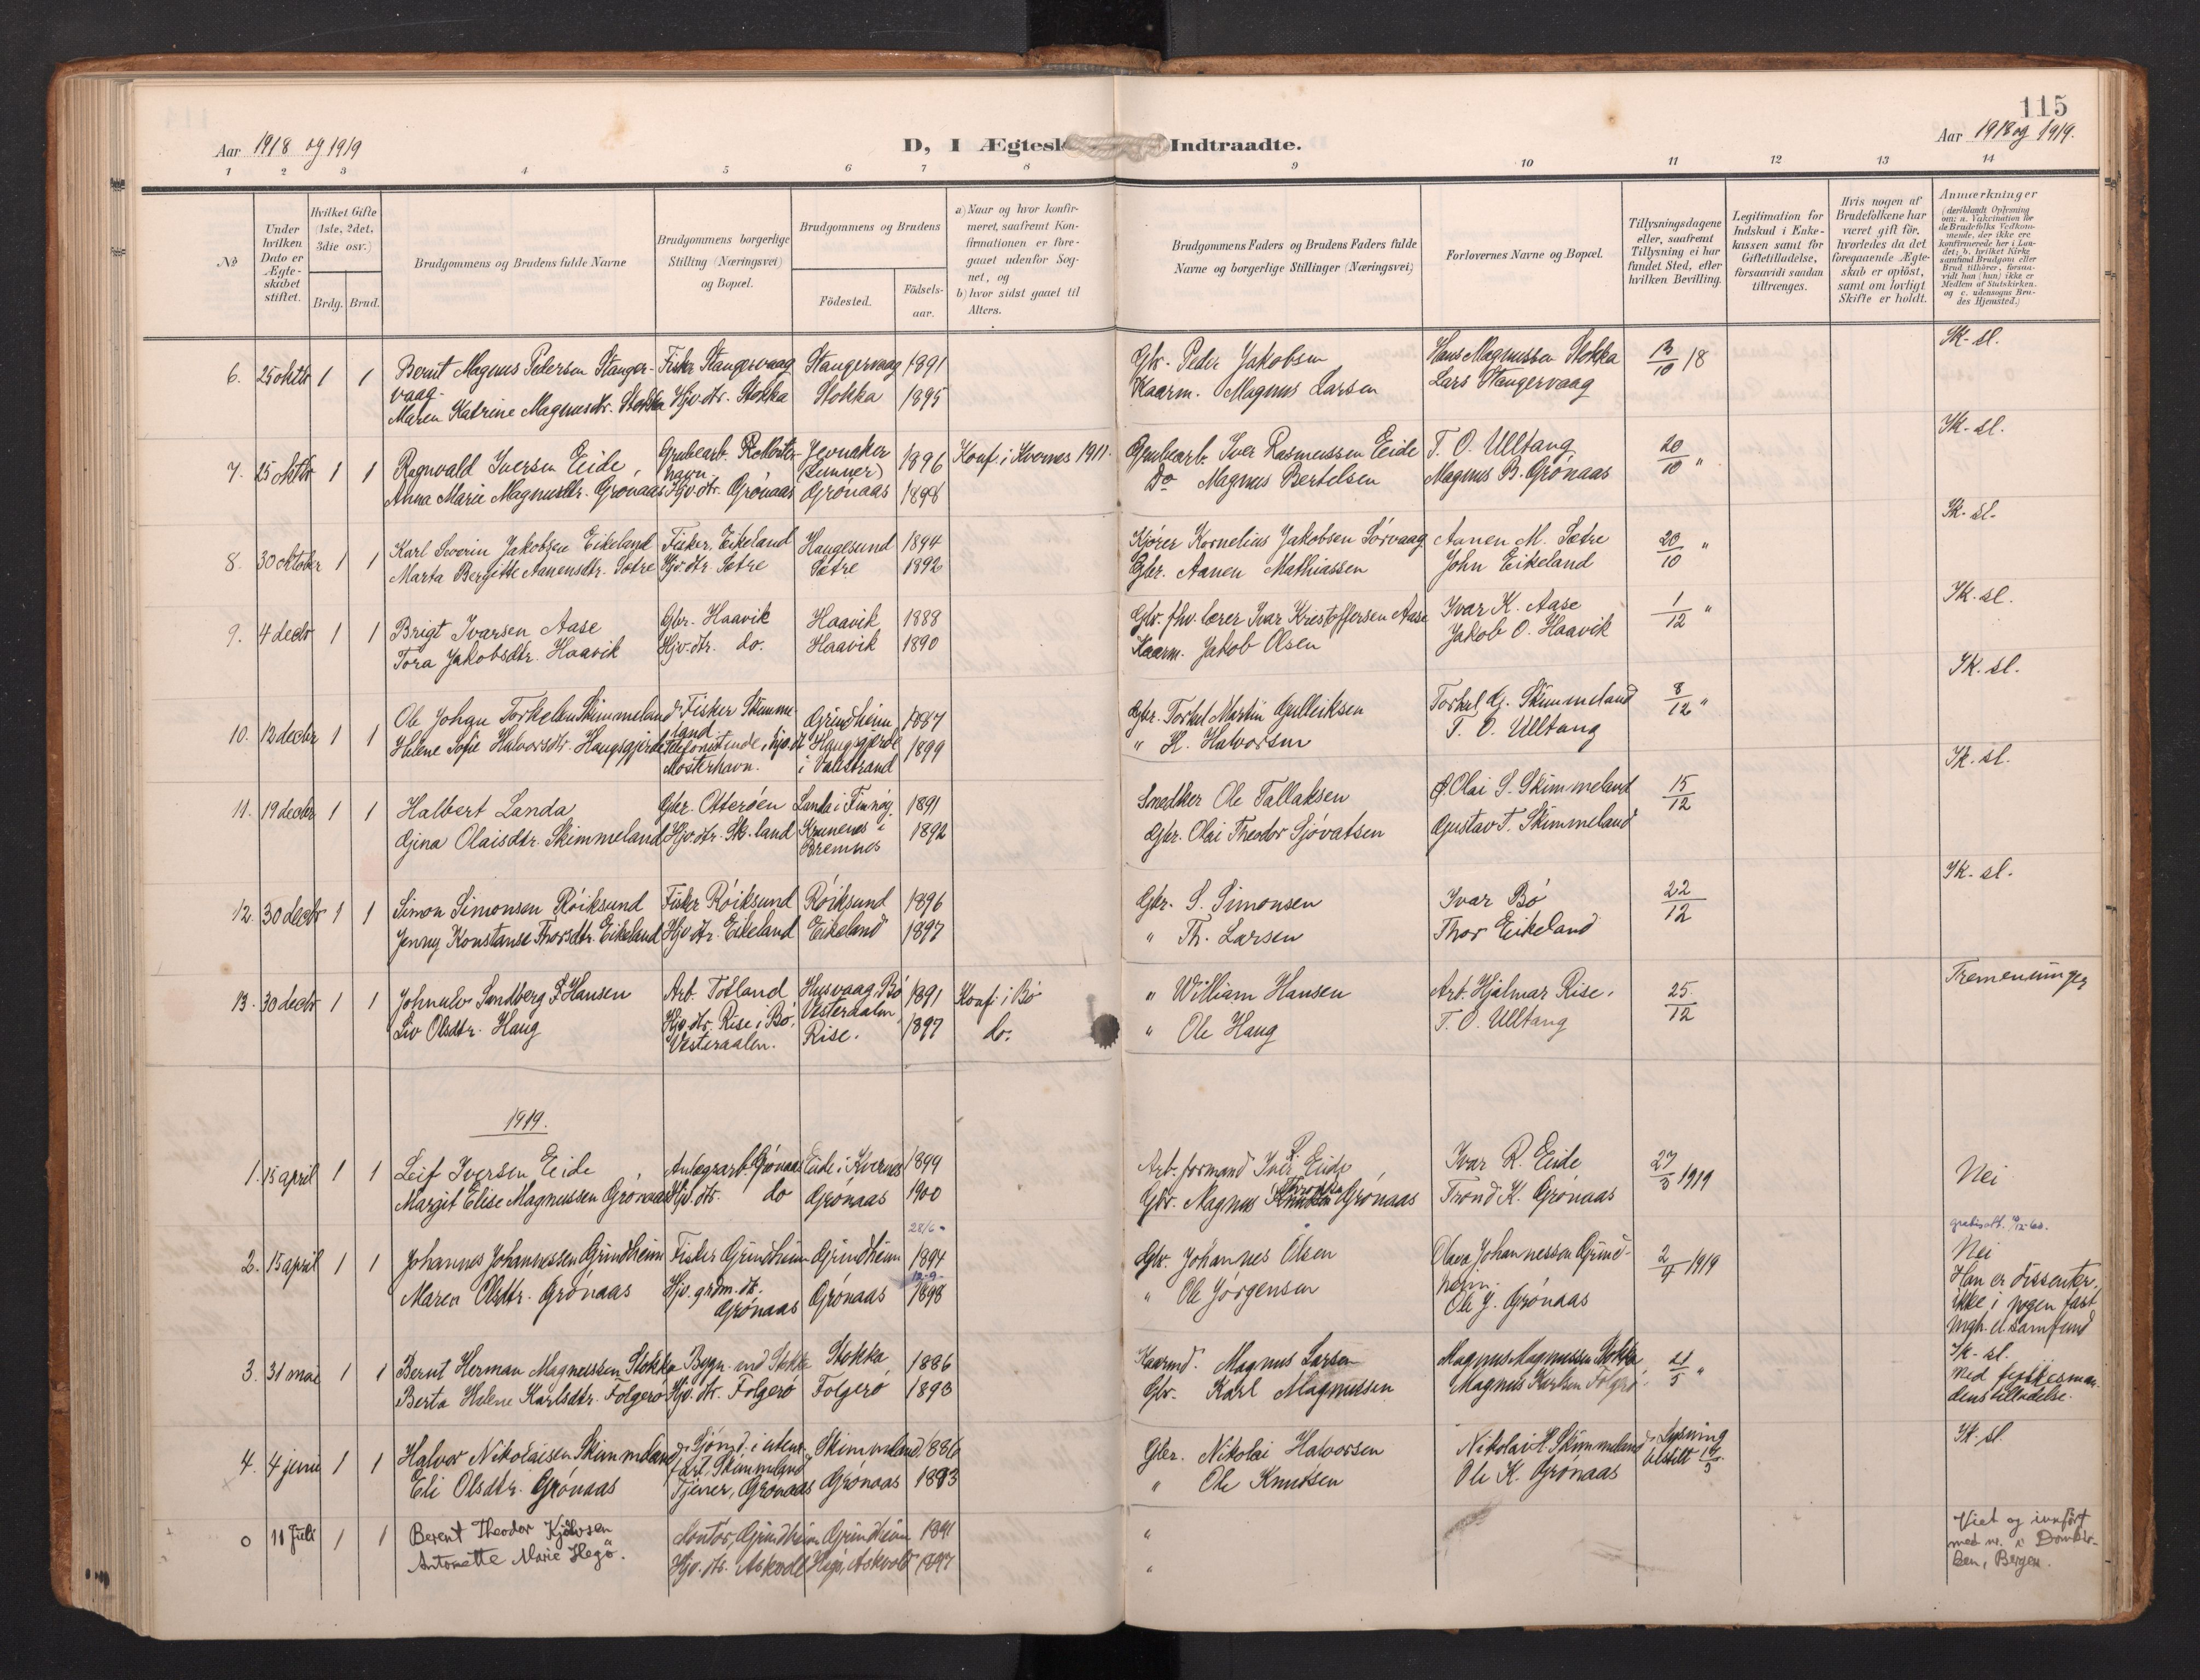 115
Aar 1918 og 1919
D, I Ægtesk Indtraadte.
Aar 1918 og 1919.
1 2 3 4 5 6 7 8 9 10 11 12 13 14
No
Under hvilken Dato er Ægteskabet stiftet.
Hvilket Gifte (1ste, 2det, 3die osv.)
Brdg. Brud.
Brudgommens og Brudens fulde Navne
Brudgommens borgerlige Stilling (Næringsvei) og Bopæl.
Brudgommens og Brudens
Födested.
Födselsaar.
a) Naar og hvor konfirmeret, saafremt Konfirmationen er foregaaet udenfor Sognet, og
b) hvor sidst gaaet til Alters.
Brudgommens Faders og Brudens Faders fulde Navne og borgerlige Stillinger (Næringsvei)
Forlovernes Navne og Bopæl.
Tillysningsdagene eller, saafremt Tillysning ei har fundet Sted, efter hvilken Bevilling.
Legitimation for Indskud i Enkekassen samt for Giftetilladelse, forsaavidt saadan tiltrænges.
Hvis nogen af Brudefolkene har været gift för, hvorledes da det foregaaende Ægteskab er oplöst, samt om lovligt Skifte er holdt.
Anmærkninger
(deriblandt Oplysning om: a. Vakcination for de Brudefolks Vedkommende, der ikke ere konfirmerede her i Landet; b. hvilket Kirkesamfund Brudgom eller Brud tilhörer, forsaavidt han (hun) ikke er Medlem af Statskirken. og c. udensogns Brudes Hjemsted.)
6. 25 oktbr 1 1 Bernt Magnus Pedersen Stangervaag. Fisker Stangervaag Stangervaag 1891 Gbr. Peder Jakobsen Hans Magnussen Stokka 13/10 18 Ik. sl.
Maren Katrine Magnusdtr. Stokka Hjv. dtr. Stokka Stokka 1895 Kaarm. Magnus Larsen Lars Stangervaag
7. 25 oktbr 1 1 Ragnvald Iversen Eide, Grubearb. Jevnaker (Lunner) 1896 Konf. i Kvernes 1911. Grubearb. Iver Rasmussen Eide T. O. Ulltang 20/10 " Ik. sl.
Anna Marie Magnusdtr. Grönaas Hjv. dtr. Grönaas Grönaas 1898 Do Magnus Bertelsen Magnus B. Grönaas
8. 30 oktober 1 1 Karl Severin Jakobsen Eikeland Fisker, Eikeland Haugesund 1894 Kjörer Kornelius Jakobsen Sörvaag Aanen M. Sætre 20/10 " Ik. sl.
Marta Bergitte Aanensdtr. Sætre Hjv. dtr. Sætre Sætre 1892 Gbr. Aanen Mathiassen John Eikeland
9. 4 decbr 1 1 Brigt Ivarsen Aase Gbr. Haavik Haavik 1888 Gbr. fhv. lærer Ivar Kristoffersen Aase Ivar K. Aase 1/12 " Ik. sl.
Tora Jakobsdtr. Haavik Hjv. dtr. do. Haavik 1890 Kaarm. Jakob Olsen Jakob O. Haavik
10. 12 decbr 1 1 Ole Johan Torkelsen Skimmeland Fisker Skimmeland Grindheim 1887 Gbr. Torkel Martin Gulleiksen Torkel G. Skimmeland 8/12 " Ik. sl.
Helene Sofie Halvorsdtr. Haugsgjerde Telefonistinde, hjv. dt Mosterhavn. Haugsgjerde i Valestrand 1899 " H. Halvorsen T. O. Ulltang
11. 19 decbr 1 1 Halbert Landa Gbr. Otteröen Landa i Finnöy 1891 Snedker Ole Tallaksen Olai S. Skimmeland 15/12 Ik. sl.
Gina Olaisdtr. Skimmeland Hjv. dtr. Sk.land i Bremnes 1892 Gbr. Olai Theodor Sjövatsen Gustav T. Skimmeland
12. 30 decbr 1 1 Simon Simonsen Röiksund Fisker Röiksund Röiksund 1896 Gbr. S. Simonsen Ivar Bö 22/12 Ik. sl.
Jenny Konstanse Thorsdtr. Eikeland Hjv. dtr. Eikeland Eikeland 1897 " Th. Larsen Thor Eikeland
13. 30 decbr 1 1 Sandberg Hansen Arb. Totland Husvaag, Bö 1891 Konf. i Bö " William Hansen Arb. Hjalmar Rise. 25/12 Tremenninger
Liv Olsdtr. Haug Hjv. dtr. Rise i Bö. Vesteraalen. Rise. 1897 do. " Ole Haug T. O. Ulltang
1919.
1. 15 april 1 1 Leif Iversen Eide Anlægsarb. Grönaas Eide i Kvernes 1899 Arb. formand Iver R. Eide Ivar R. Eide 27/3 1919 Nei
Margit Elise Magnussen Grönaas Hjv. dtr. do Grönaas 1900 Gbr. Magnus Grönaas Trond K. Grönaas
2. 15 april 1 1 Johannes Johannessen Grindheim Fisker Grindheim Grindheim 28/6 1894 Gbr. Johannes Olsen Johannessen Grindheim. 2/4 1919 Nei
Maren Olsdtr. Grönaas Hjv. grdm. dt. Grönaas Grönaas 12-9- 1898 " Ole Jörgensen Ole J. Grönaas
Han er dissenter, ikke i nogen fast mgh. el. samfund
3. 31 mai 1 1 Bernt Herman Magnussen Stokka Bygn. Stokka Stokka 1886 Kaarmd. Magnus Larsen Magnus Magnussen Stokka 21/5 " Ik. sl.
Berta Helene Karlsdtr. Folgerö Hjv. dtr. Folgerö Folgerö 1893 Gbr. Karl Magnussen Magnus Karlsen Folgerö.
med fylkesmandens tilladelse.
4. 4 juni 1 1 Halvor Nikolaisen Skimmeland Sjömd. i utenr. fart, Skimmeland Skimmeland 1886 Gbr. Nikolai Halvorsen Nikolai H. Skimmeland Lysning Ik. sl.
Eli Olsdtr. Grönaas Tjener, Grönaas Grönaas 1893 " Ole Knutsen Ole K. Grönaas
0 11 Juli 1 1 Berent Theodor Grindheim Grindheim 1891 "
Antonette Marie Hegö. Hjv. dtr. Askvoll Hegö, Askvoll 1897 "
Viet og innfört med nr. i Domkirken, Bergen.